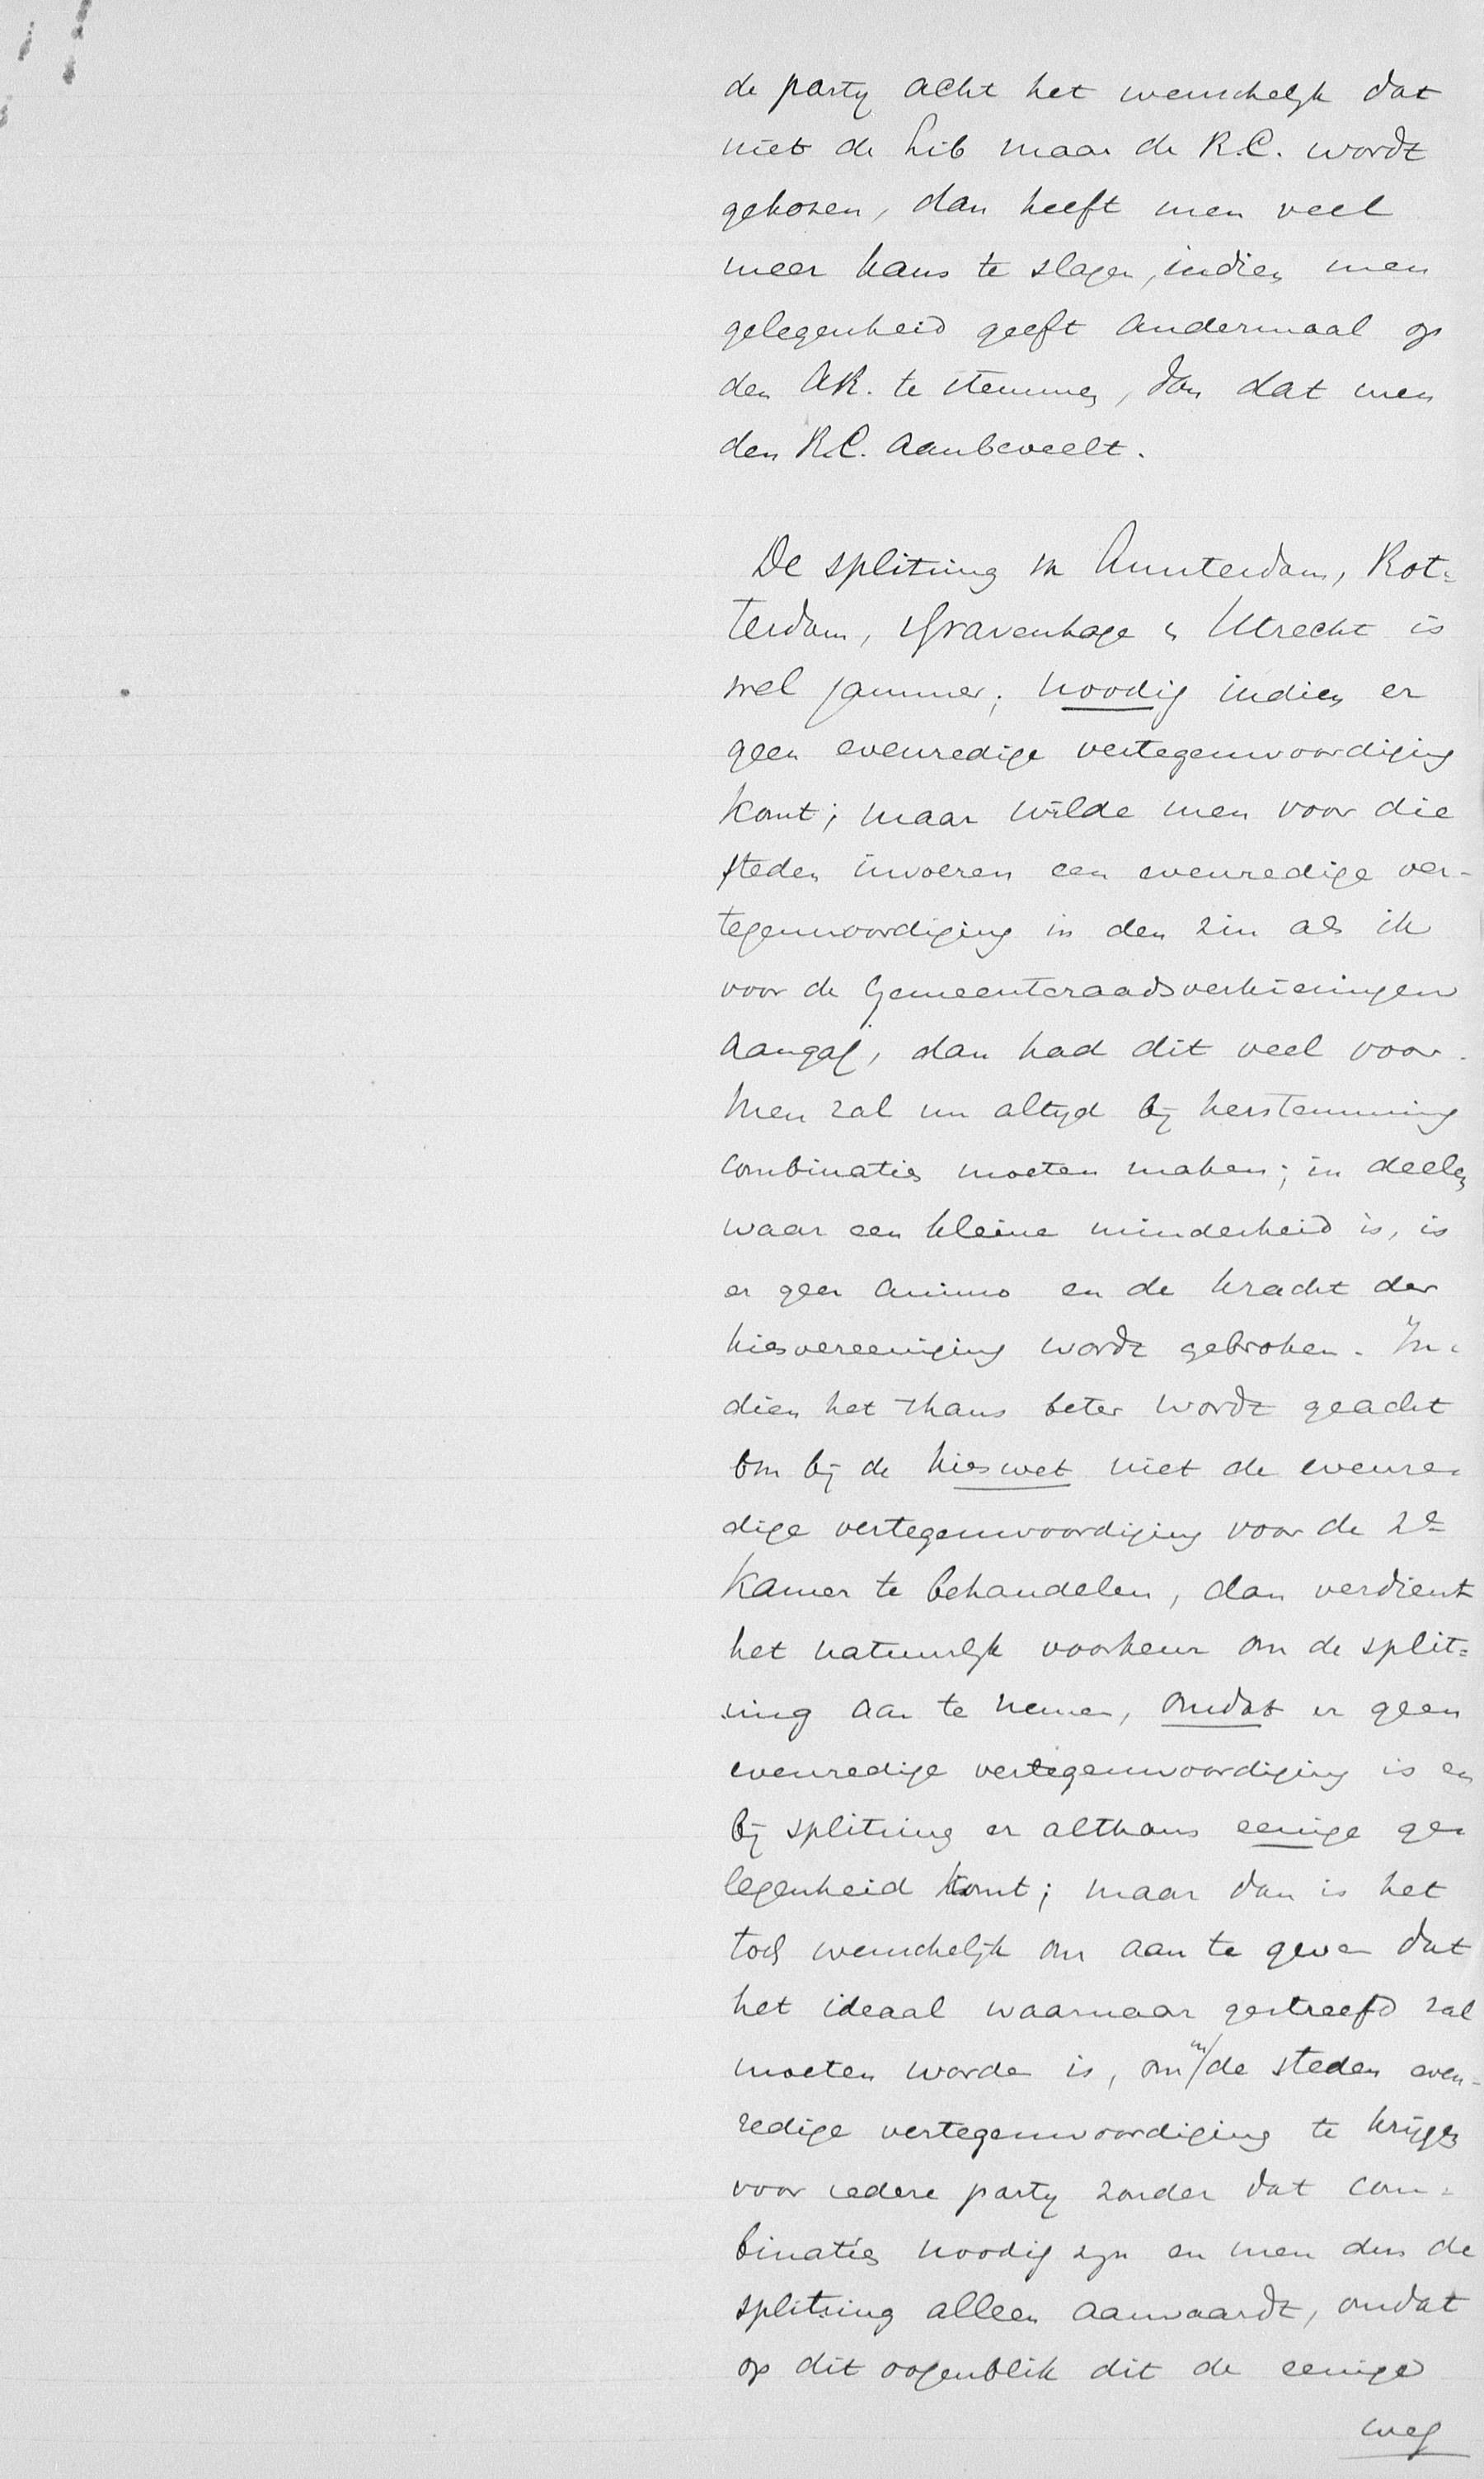 de party acht het wenschelyk dat
niet de Lib maar de R.C. wordt
gekozen, dan heeft men veel
meer kans te slagen, indien men
gelegenheid geeft andermaal op
den AR. te stemmen, dan dat men
den R.C. aanbeveelt.
De splitsing in Amsterdam, Rot=
terdam, 'sGravenhage & Utrecht is
wel jammer; noodig indien er
geen evenredige vertegenwoordiging
komt; maar wilde men voor die
steden invoeren een evenredige ver-
tegenwoordiging in den zin als ik
voor de Gemeenteraadsverkiezingen
aangaf, dan had dit veel voor.
Men zal nu altyd bij herstemming
combinaties moeten maken; in deelen
waar een kleine minderheid is, is
er geen animo en de kracht der
kiesvereeniging wordt gebroken. In-
dien het thans beter wordt geacht
om bij de kieswet niet de evenre-
dige vertegenwoordiging voor de 2e
Kamer te behandelen, dan verdient
het natuurlyk voorkeur om de split=
sing aan te nemen, omdat er geen
evenredige vertegenwoordiging is en
bij splitsing er althans eenige ge-
legenheid komt; maar dan is het
toch wenschelijk om aan te geven dat
het ideaal waarnaar gestreefd zal
moeten worden is, om in de steden even-
redige vertegenwoordiging te krijgen
voor iedere party zonder dat com-
binaties noodig zyn en men dus de
splitsing alleen aanvaardt, omdat
op dit oogenblik dit de eenige
weg